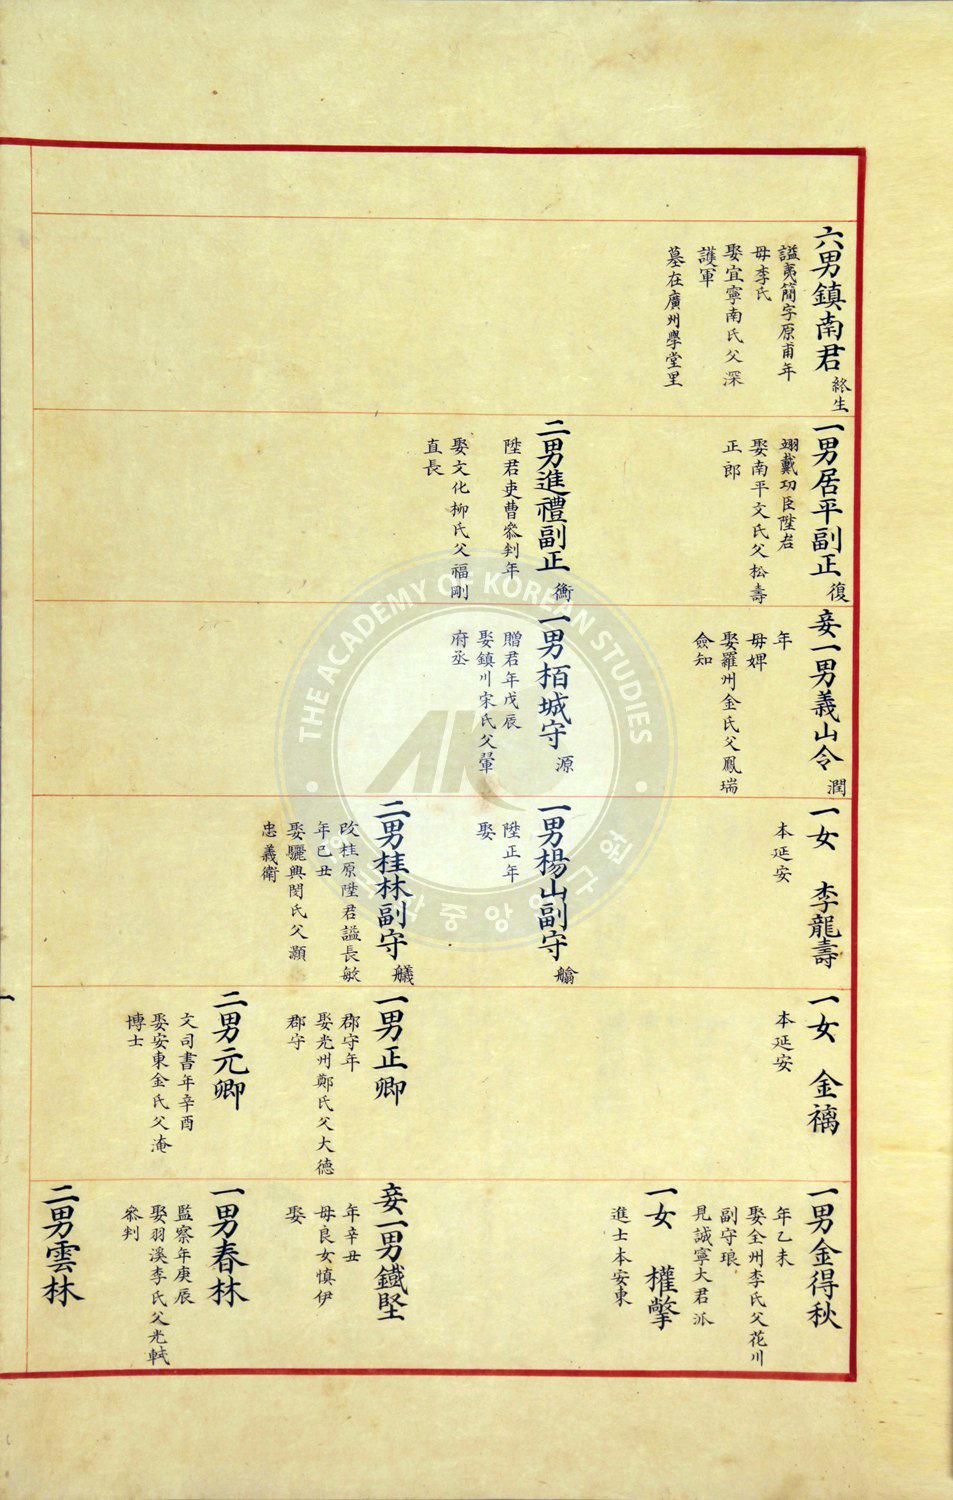 六男鎮南君 終生
謚夷簡字原甫年
母李氏
娶宜寧南氏父深
護軍
墓在廣州學堂里
一男居平副正 復
翊戴功臣陞君
娶南平文氏父松壽
正郎
二男進禮副正 衡
陞君吏曹叅判年
娶文化柳氏父福剛
直長
妾一男義山令 潤
年
母婢
娶羅州金氏父鳳瑞
僉知
一男栢城守 源
贈君年戊辰
娶鎮川宋氏父翬
府丞
一女 李龍壽
本延安
一男楊山副守
陞正年
娶
二男桂林副守
改桂原陞君謚長敏
年己丑
娶驪興閔氏父灝
忠義衛
一女 金禑
本延安
一男正卿
郡守年
娶光州鄭氏父大德
郡守
二男元卿
文司書年辛酉
娶安東金氏父淹
博士
一男金得秋
年乙未
娶全州李氏父花川
副守琅
見誠寧大君派
一女 權擎
進士本安東
妾一男鐵堅
年辛丑
母良女慎伊
娶
一男春林
監察年庚辰
娶羽溪李氏父光軾
叅判
二男雲林
THE ACADEMY OF KOREAN STUDIES
AK